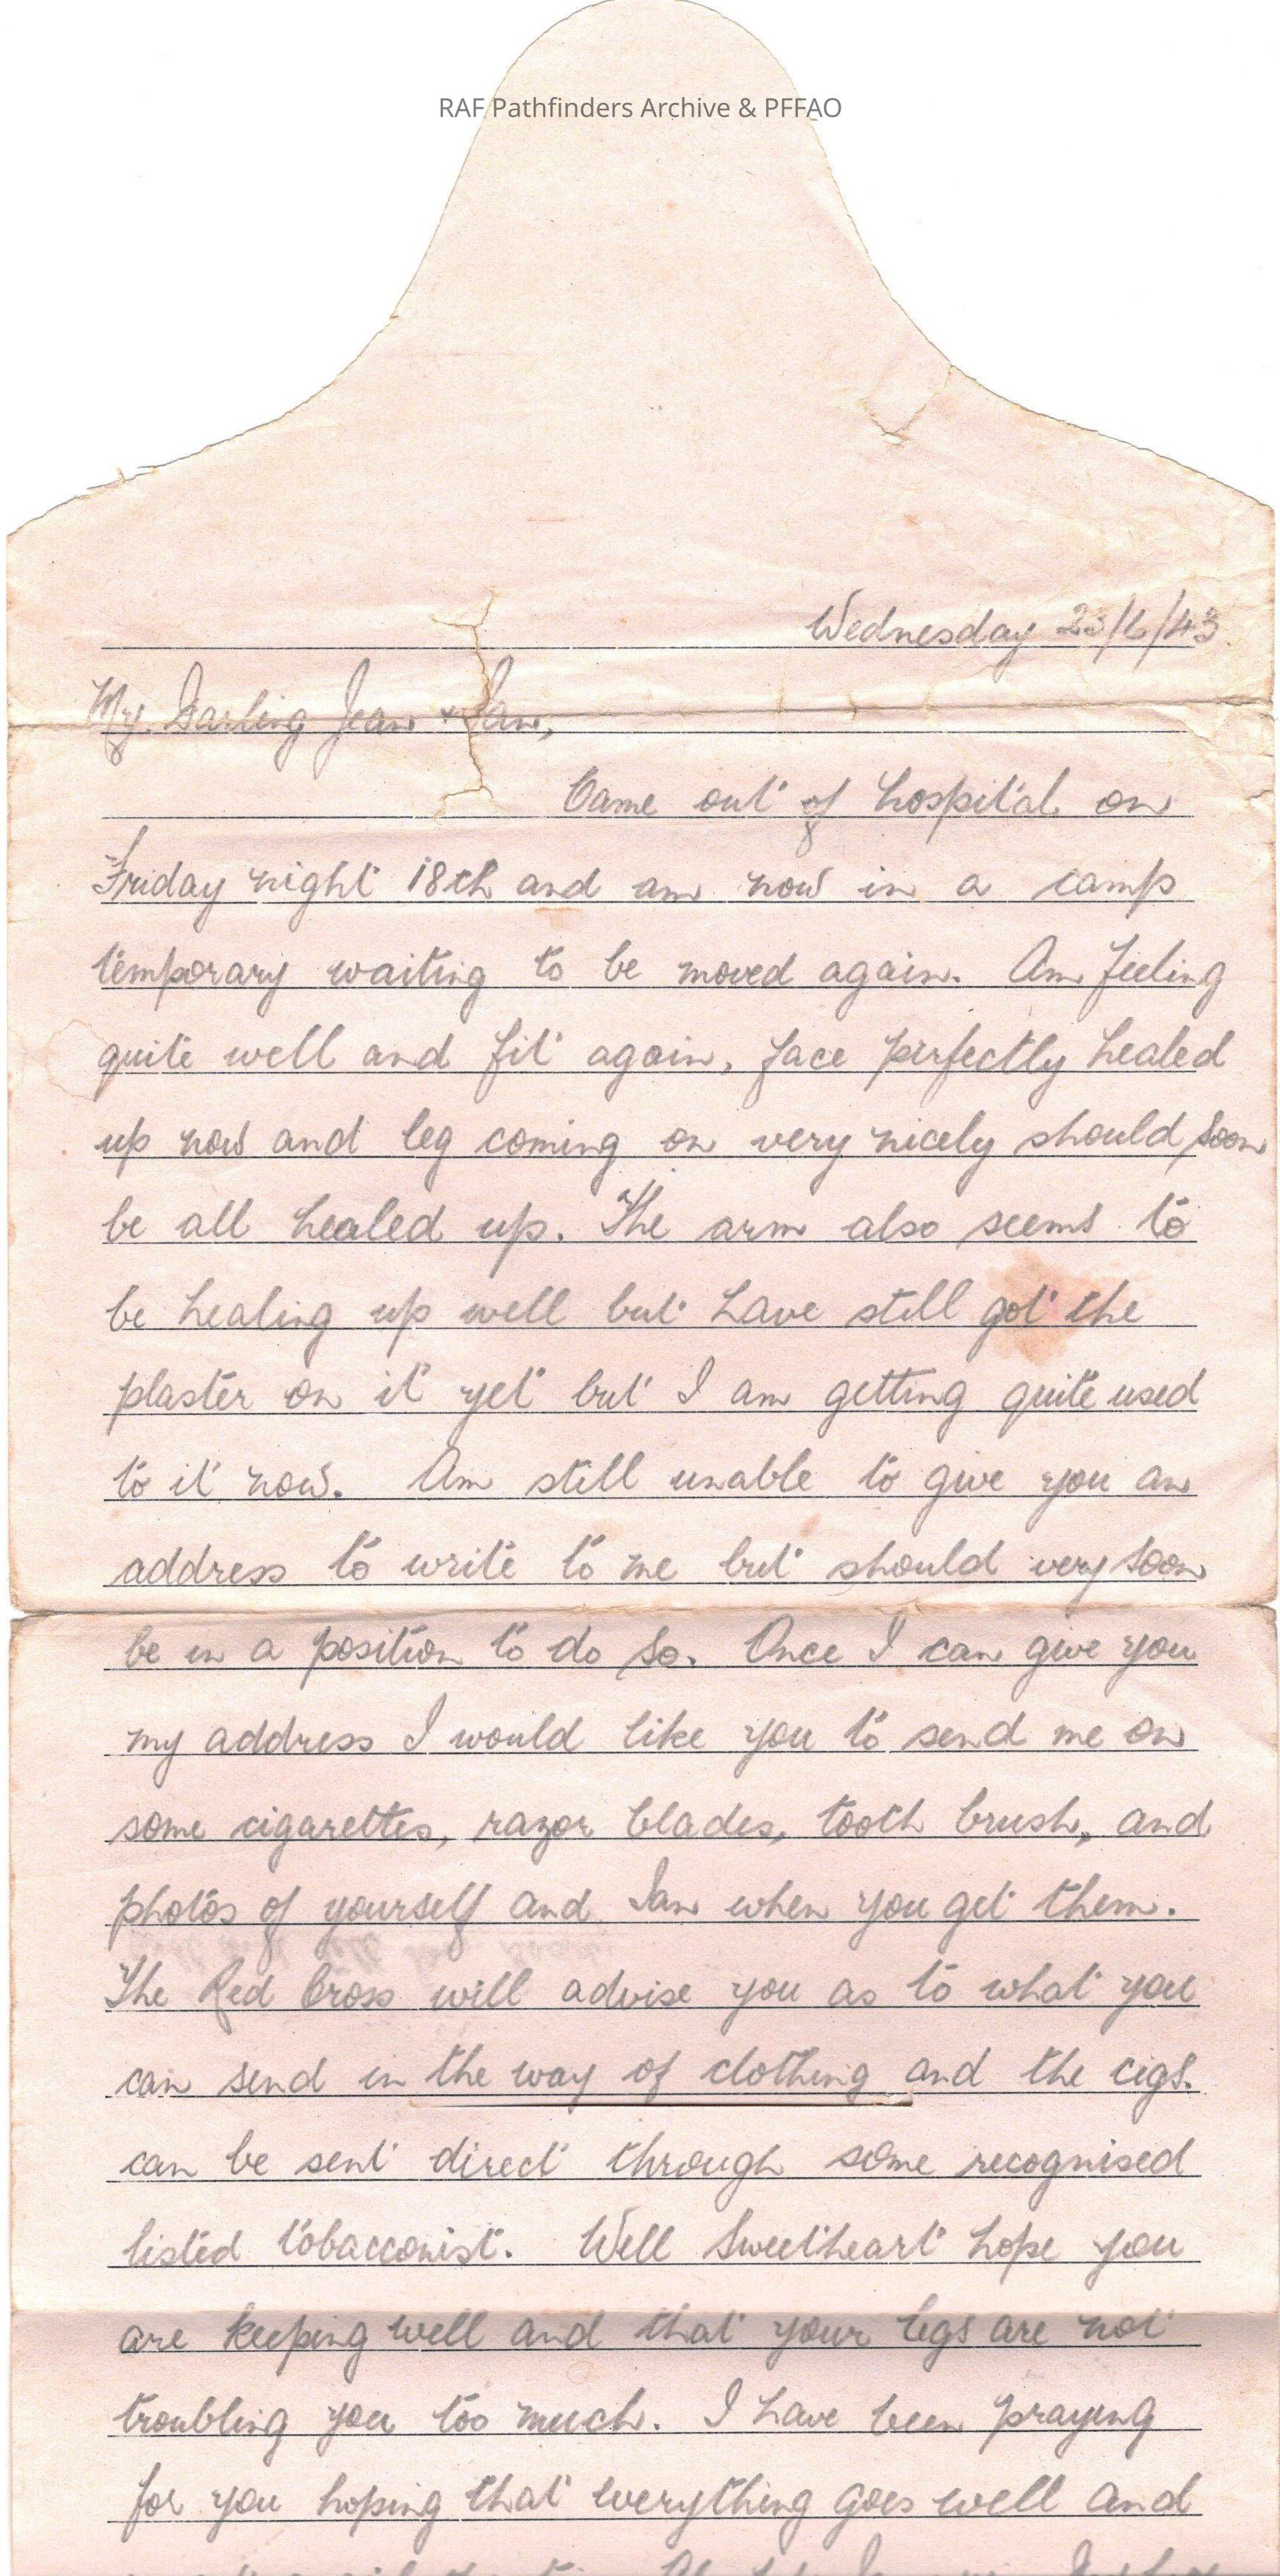 RAF Pathfinders Archive & PFFAO
Wednesday 23/6/43
My. Darling Jean + Ian,
Came out of hospital on
Friday night 18th and am now in a camp
temporary waiting to be moved again. Am feeling
quite well and fit again, face perfectly healed
up now and leg coming on very nicely should soon
be all healed up. The arm also seems to
be healing up well but have still got the
plaster on it yet but I am getting quite used
to it now. Am still unable to give you an
address to write to me but should very soon
be in a position to do so. Once I can give you
my address I would like you to send me on
some cigarettes, razor blades, tooth brush, and
photos of yourself and Ian when you get them.
The Red Cross will advise you as to what you
can send in the way of clothing and the cigs.
can be sent direct through some recognised
listed tobacconist. Well Sweetheart hope you
are keeping well and that your legs are not
troubling you too much. I have been praying
for you hoping that everything goes well and